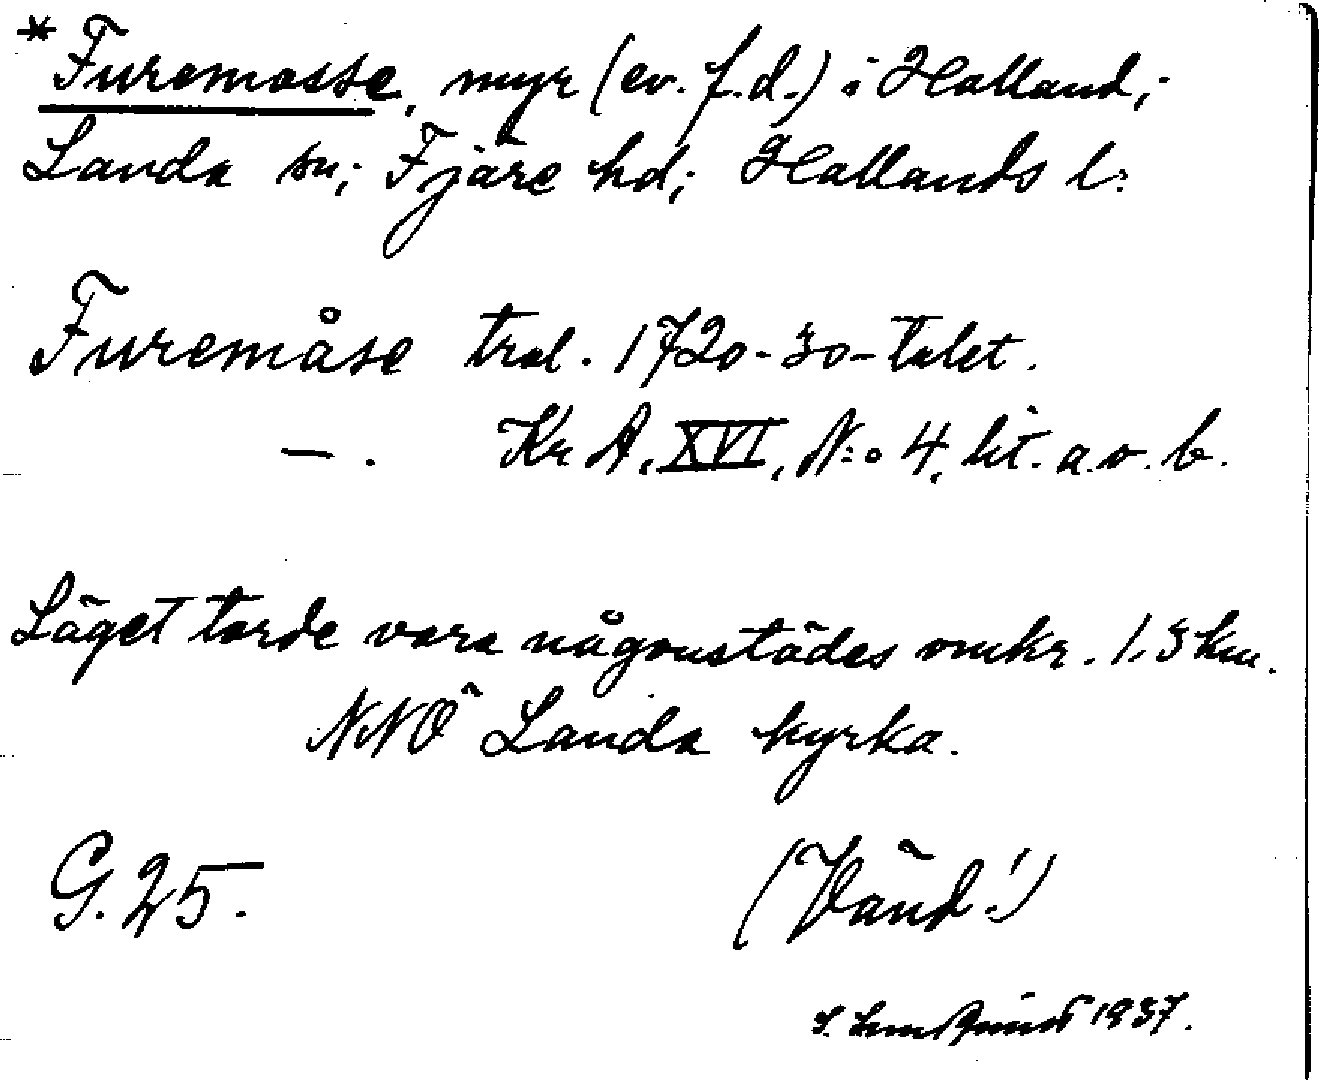 * Furemosse, myr (ev. f.d.) i Halland;
Landa sn; Fjäre hd; Hallands l:
Furemåse trol. 1720-30-talet.
— . Kr A, XVI, N:o 4, lit. a.o. b.
Läget torde vara någonstädes omkr. 1,3 km.
NNÖ Landa kyrka.
G. 25.
(Vänd!)
1937.